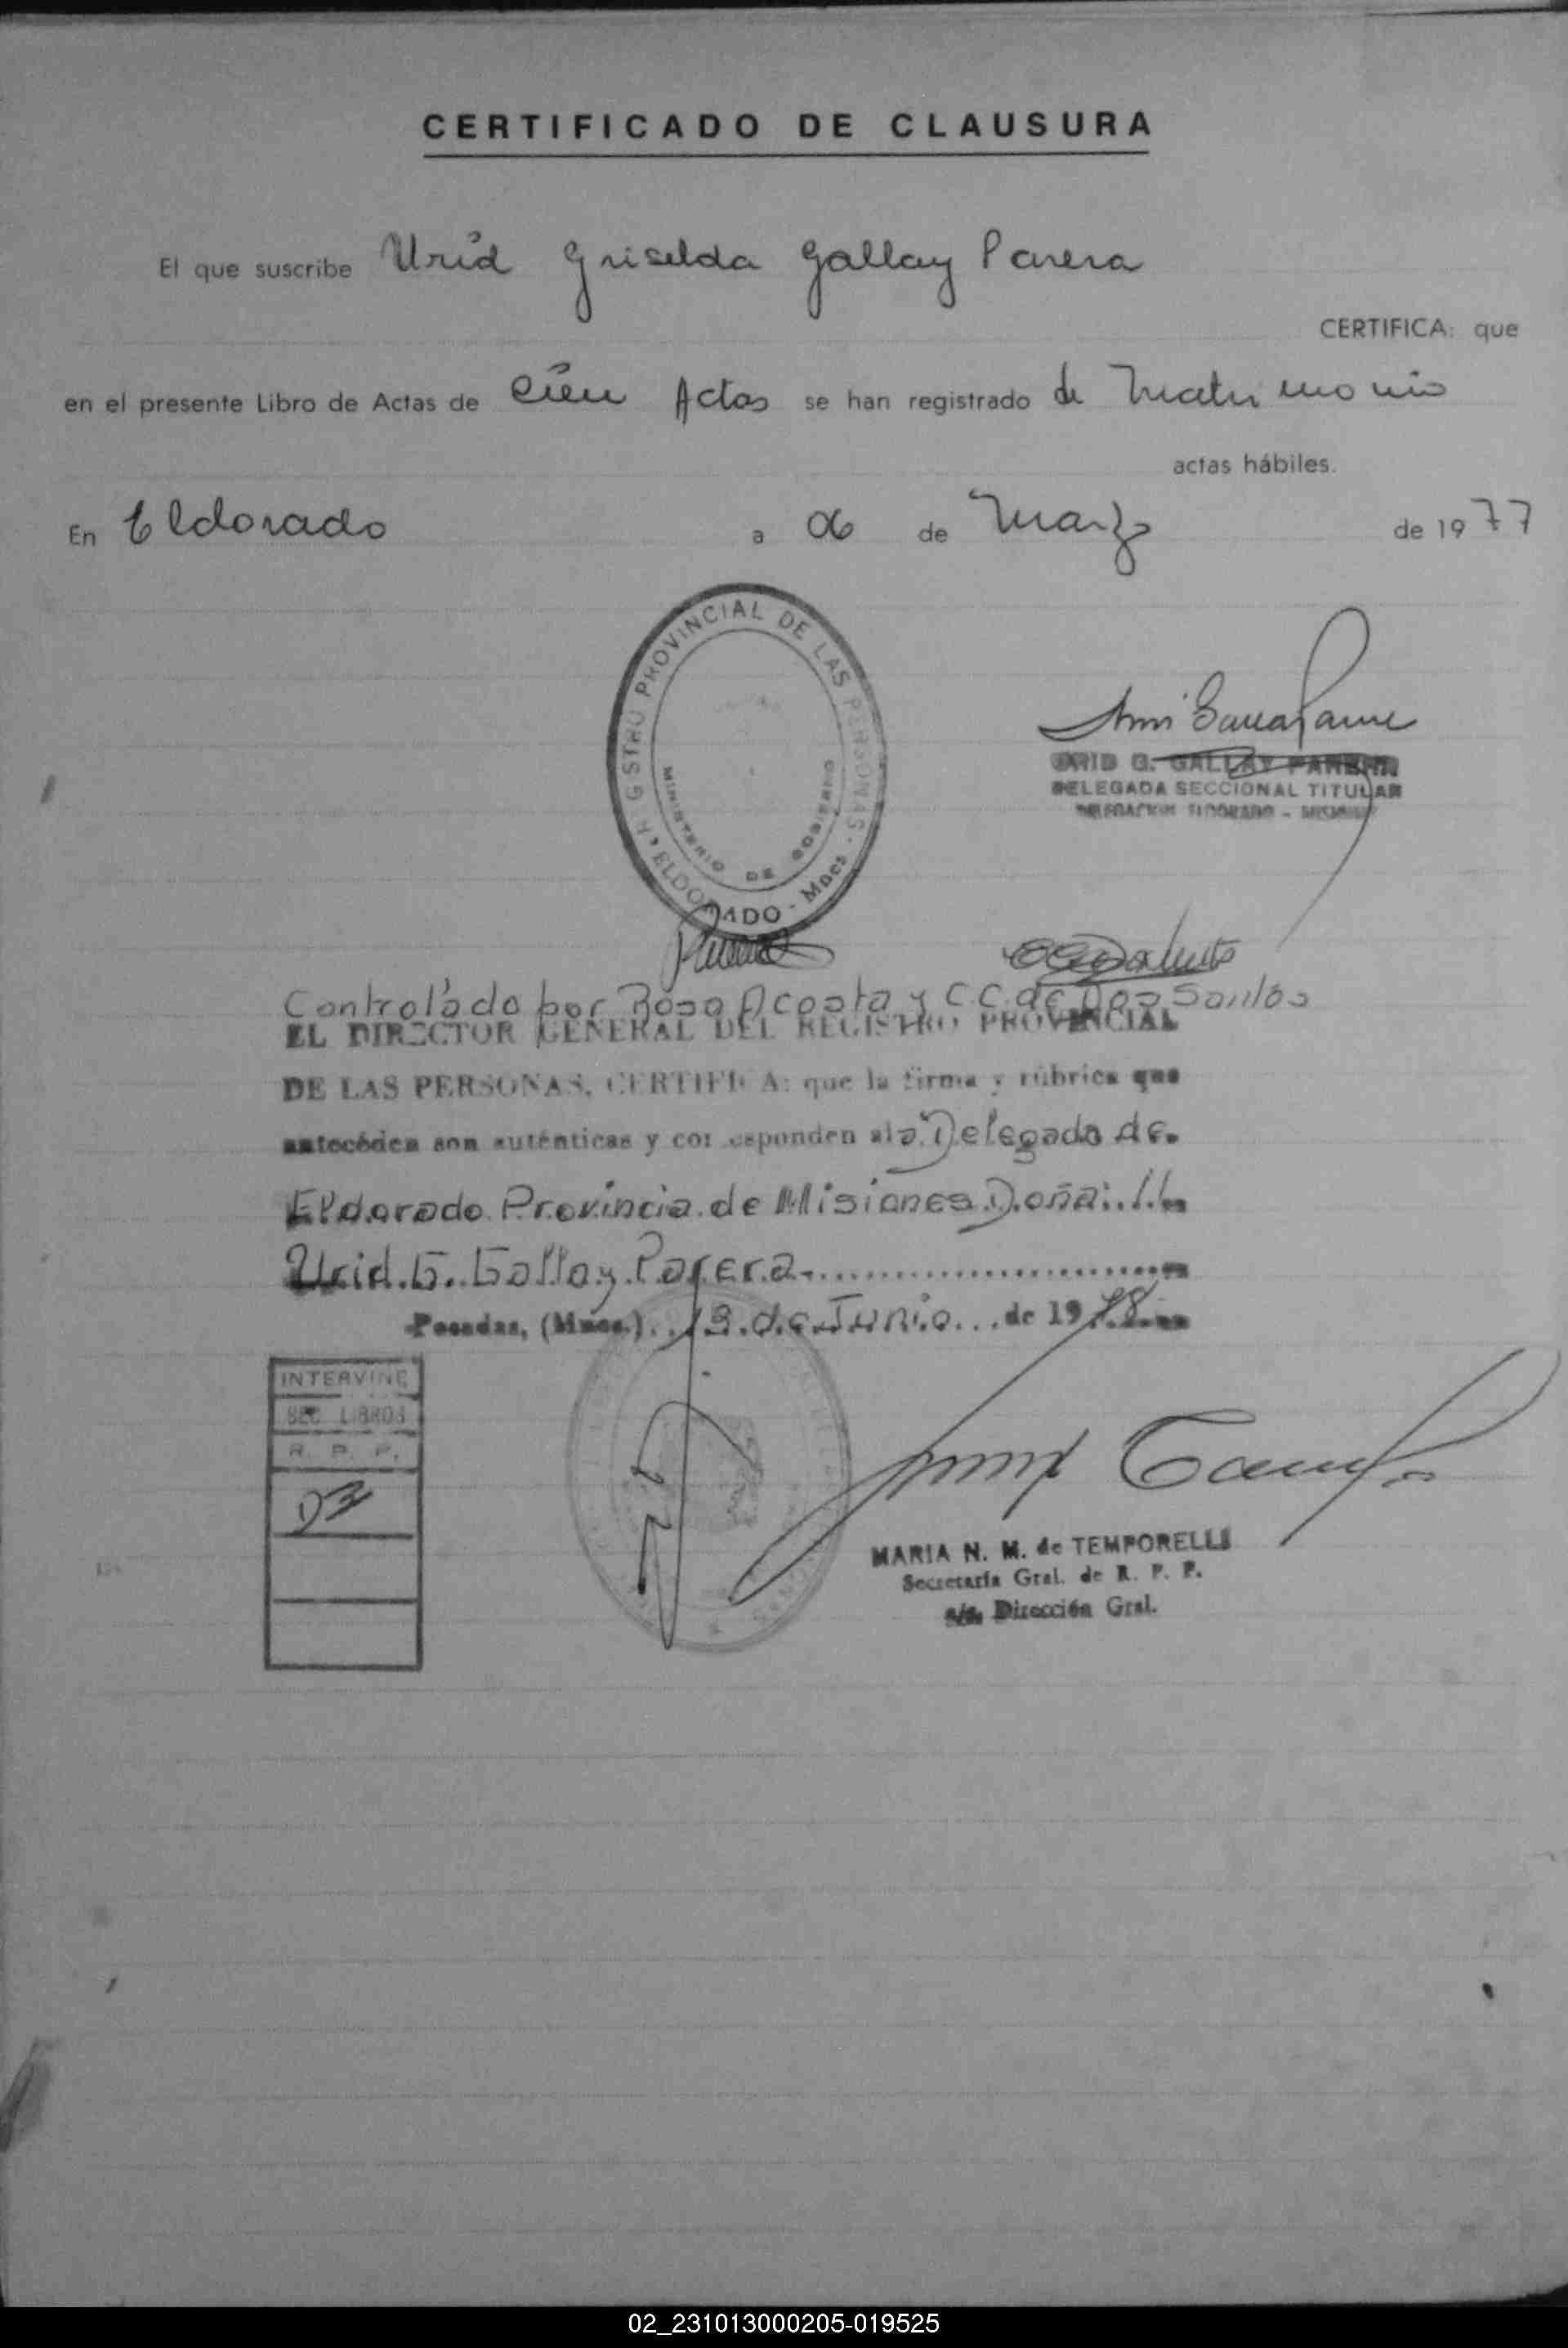 CERTIFICADO DE CLAUSURA
El que suscribe Urid Griselda Gallay Parera
CERTIFICA: que
en el presente Libro de Actas de cien Actas se han registrado de Matrimonio
actas hábiles.
En Eldorado a 06 de Marzo de 1977
REGISTRO PROVINCIAL DE LAS PERSONAS
MINISTERIO DE GOBIERNO
ELDORADO - Mnes
URID G. GALLAY PARERA
DELEGADA SECCIONAL TITULAR
DELEGACION ELDORADO - MISIONES
Controlado por Rosa Acosta y C.C. de Dos Santos
EL DIRECTOR GENERAL DEL REGISTRO PROVINCIAL
DE LAS PERSONAS, CERTIFICA: que la firma y rúbrica que
antecéden son auténticas y corresponden al a Delegada de
Eldorado Provincia de Misiones Doña:
Urid. G. Gallay Parera
Posadas, (Mnes.) 13 de Junio de 1978
INTERVINE
SEC. LIBROS
R. P. P.
MARIA N. M. de TEMPORELLI
Secretaría Gral. de R. P. P.
a/c. Dirección Gral.
02_231013000205-019525